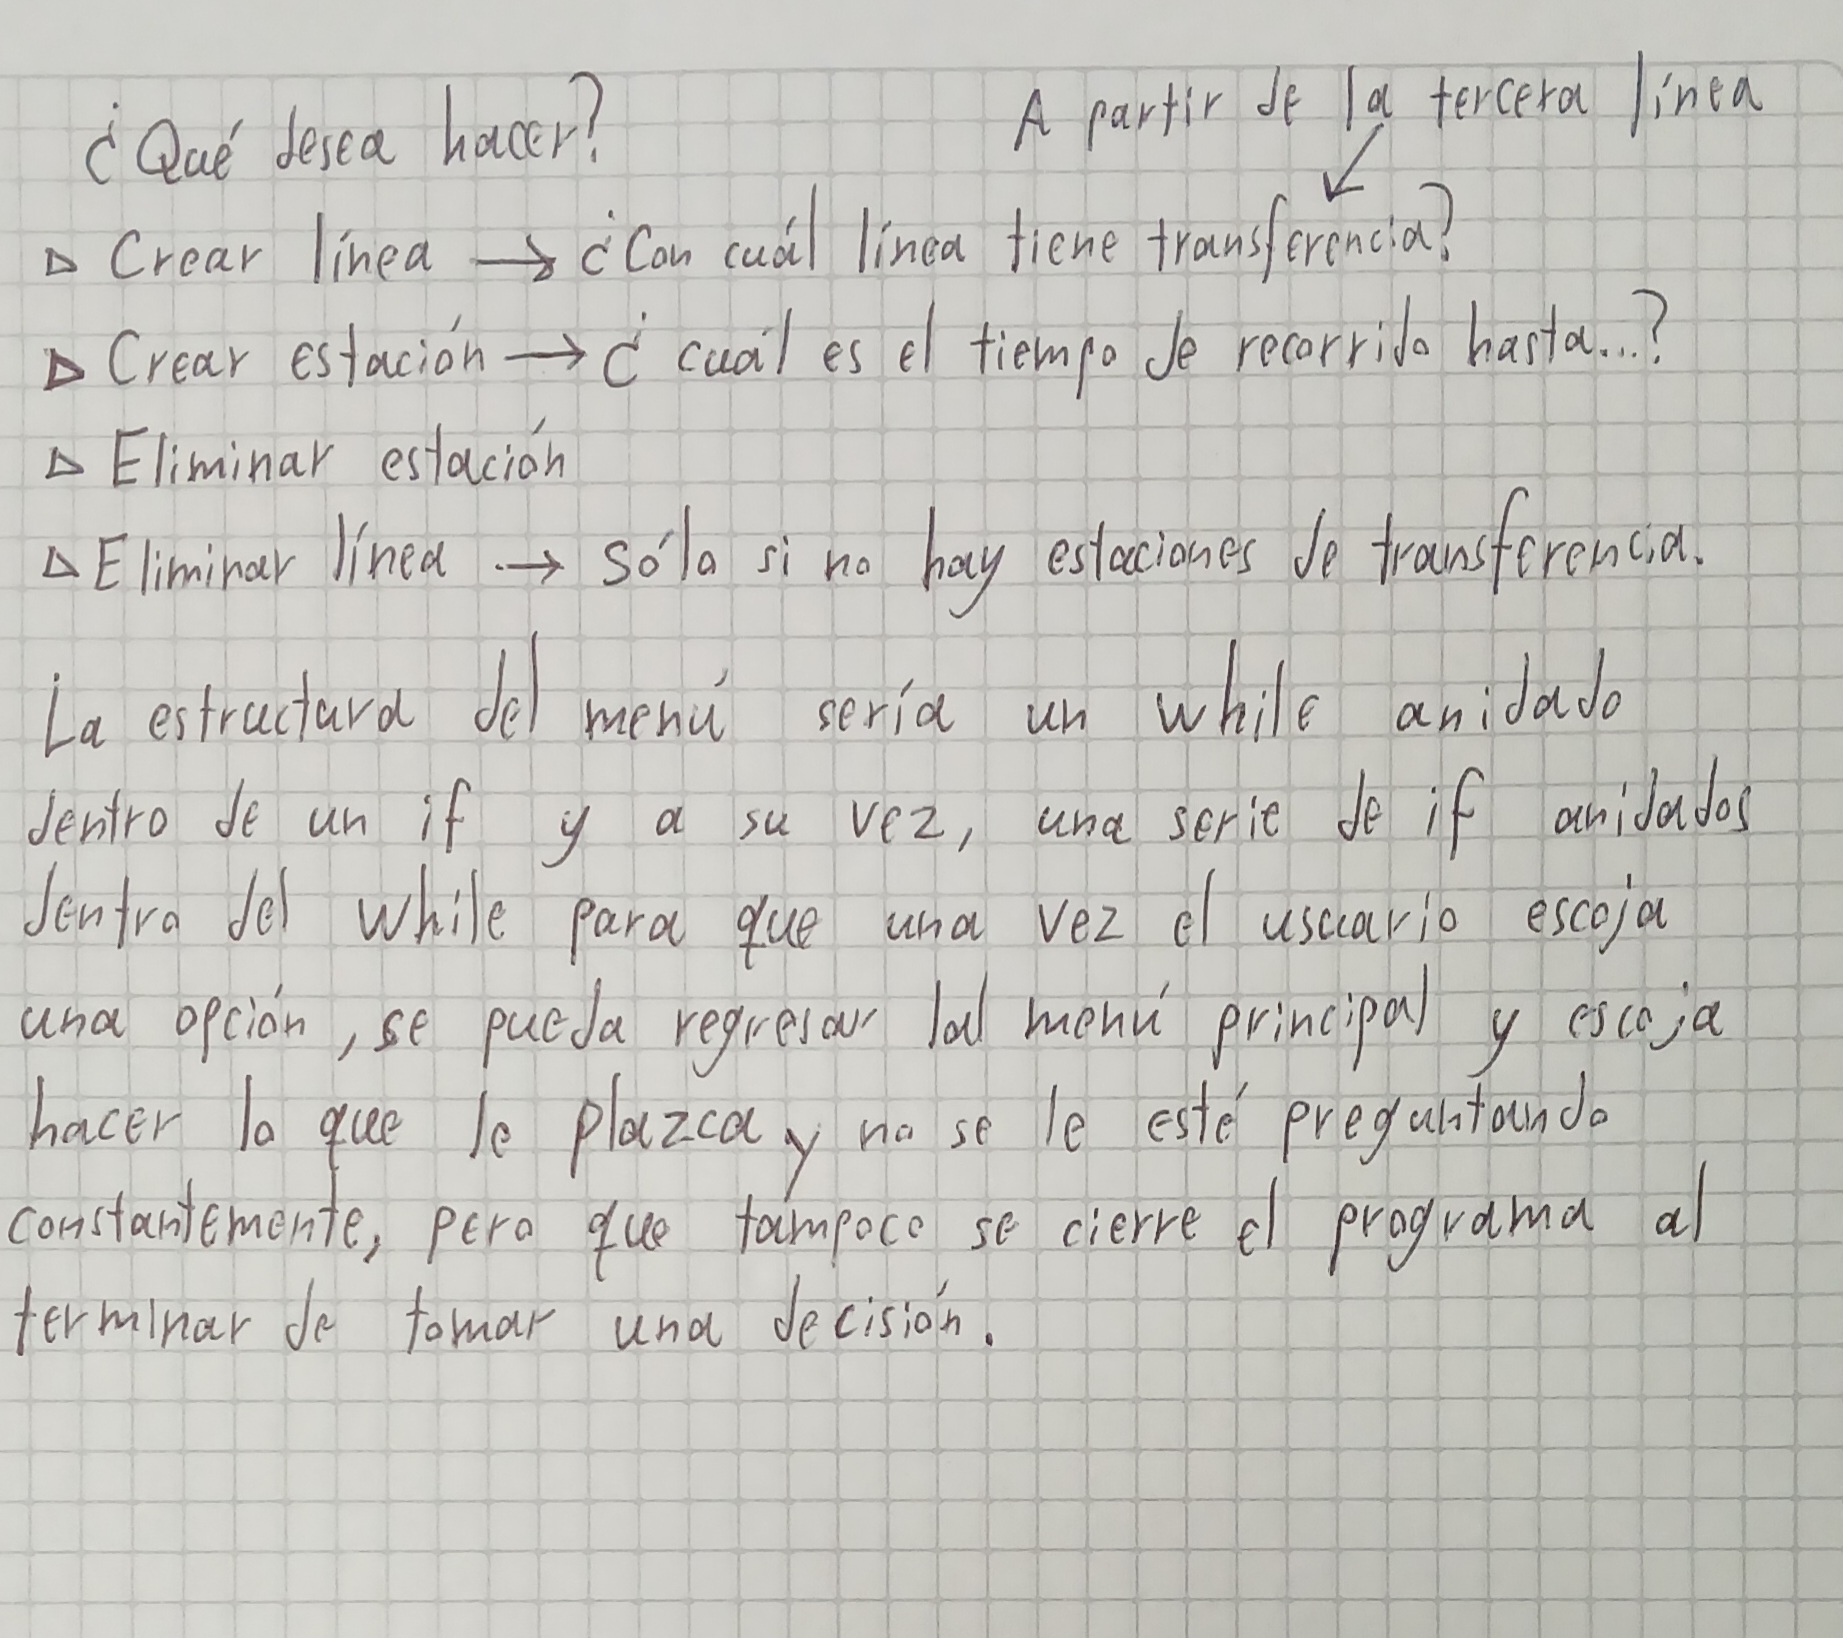 ¿Qué desea hacer?
A partir de la tercera línea
▷ Crear línea → ¿Con cuál línea tiene transferencia?
▷ Crear estación → ¿cuál es el tiempo de recorrido hasta...?
▷ Eliminar estación
▷ Eliminar línea → sólo si no hay estaciones de transferencia.
La estructura del menú sería un while anidado
dentro de un if y a su vez, una serie de if anidados
dentro del while para que una vez el usuario escoja
una opción, se pueda regresar al menú principal y escoja
hacer lo que le plazca y no se le esté preguntando
constantemente, pero que tampoco se cierre el programa al
terminar de tomar una decisión.